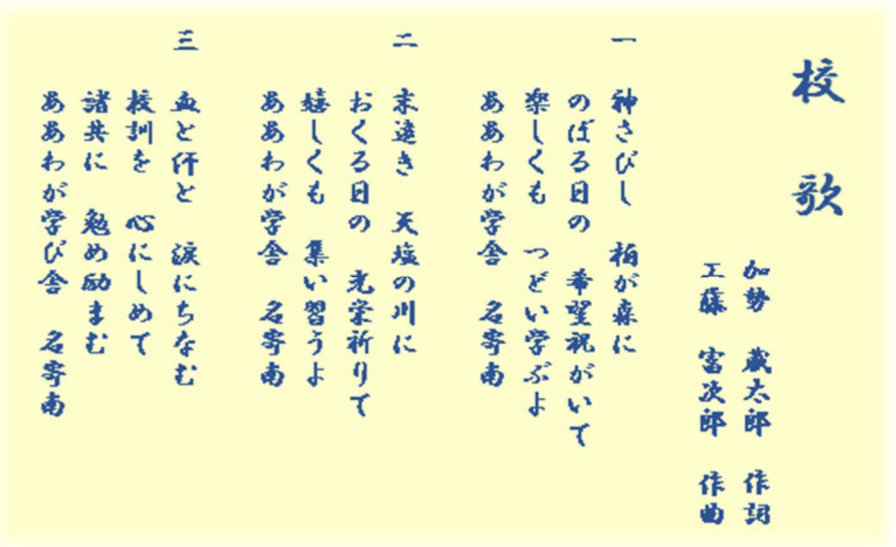 校歌
加勢 蔵太郎 作詞
工藤 富次郎 作曲
一 神さびし 柏が森に
のぼる日の 希望祝がいて
楽しくも つどい学ぶよ
ああわが学舎 名寄南
二 末遠き 天塩の川に
おくる日の 光栄祈りて
嬉しくも 集い習うよ
ああわが学舎 名寄南
三 血と汗と 涙にちなむ
校訓を 心にしめて
諸共に 勉め励まむ
ああわが学び舎 名寄南